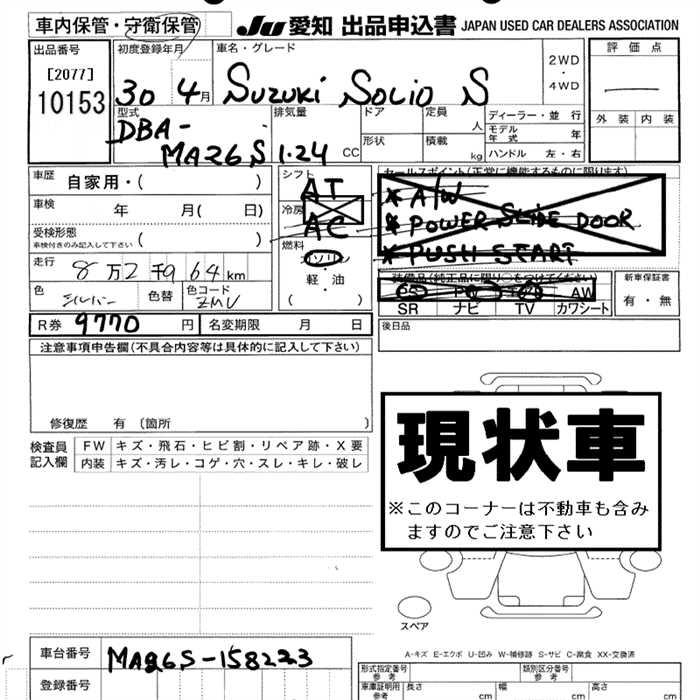 車内保管・守衛保管 JU 愛知 出品申込書 JAPAN USED CAR DEALERS ASSOCIATION
出品番号 初度登録年月 車名・グレード 2WD・4WD 評価点
[2077]
10153 30 4月 SUZUKI SOLIO S
外装 内装
型式 排気量 ドア 定員 人 ディーラー・並行
DBA-
MA26S 1.24 CC 形状 積載 kg モデル年式 年
ハンドル 左・右
車歴 自家用・( ) シフト AT セールスポイント(正常に機能するものに限ります)
* A/W
車検 年 月( 日) 冷房 AC * POWER SLIDE DOOR
受検形態 ( )
車検付きのみ記入して下さい
燃料 ガソリン * PUSH START
走行 8万2千9 64 km 軽・油 装備品(純正品に限り○をつけてください) 新車保証書
色 シルバー 色替 色コード ZMU ( ) AW 有・無
SR ナビ TV カワシート
R券 9770 円 名変期限 月 日 後日品
注意事項申告欄(不具合内容等は具体的に記入して下さい)
修復歴 有 (箇所 )
現状車
※このコーナーは不動車も含み
ますのでご注意下さい
検査員記入欄 FW キズ・飛石・ヒビ割・リペア跡・X要
内装 キズ・汚レ・コゲ・穴・スレ・キレ・破レ
スペア
A-キズ E-エクボ U-凹み W-補修跡 S-サビ C-腐食 XX-交換済
車台番号 MA26S-158223
型式指定番号 参考 類別区分番号 参考
登録番号 車庫証明用 参考 長さ cm 幅 cm 高さ cm